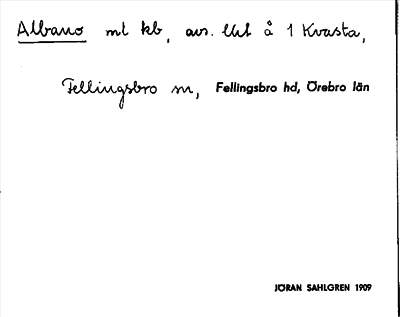 Albano mt kb, avs. lht å 1 Kvasta,
Fellingsbro sn, Fellingsbro hd, Örebro län
JÖRAN SAHLGREN 1909